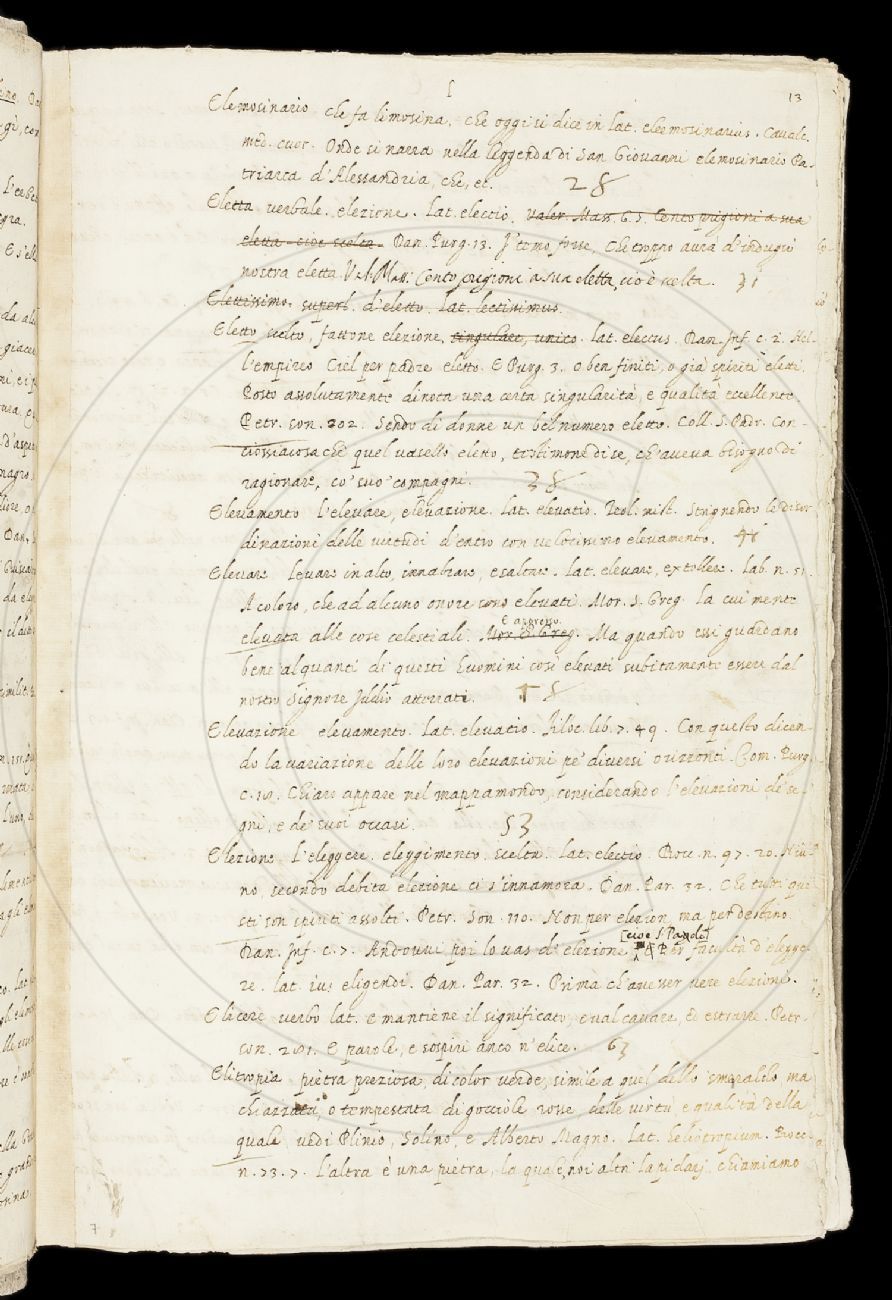 13
Elemosinario che fa limosina, che oggi si dice in lat. eleemosinarius. Cavalc.
med. cuor. Onde si narra nella leggenda di San Giovanni elemosinario Pa-
triarca d'Alessandria, che, et.
Eletta verbale. elezione. Lat. electio. Valer. Mass. G. S. Cento prigioni a sua
eletta cioe scelta. Dan. Purg. 13. I' temo forse, che troppo avrà d'indugio
nostra eletta Val. Mass. Cento prigioni a sua eletta, cio è scelta.
Elettissimo. superl. d'eletto. Lat. lectissimus.
Eletto scelto, fattone elezione, singulare, unico. lat. electus. Dan. Inf. c. 2. Nel-
l'empireo Ciel per padre eletto. E Purg. 3. o ben finiti, o già spiriti eletti.
Posto assolutamente dinota una certa singularità, e qualità eccellente.
Petr. son. 202. Sendo di donne un bel numero eletto. Coll. S. Padr. Con-
ciossiacosa che quel vasello eletto, testimone di se, ch'aveva bisogno di
ragionare, co' suo' compagni.
Elevamento l'elevare, elevazione. Lat. elevatio. Teol. mist. Strignendo le disor-
dinazioni delle vertudi d'entro con velocissimo elevamento.
Elevare Levare in alto, innalzare, esaltare. Lat. elevare, extollere. Lab. n. 51.
A coloro, che ad alcuno onore sono elevati. Mor. S. Greg. La cui mente
E appresso.
elevata alle cose celestiali. Mor. S. Greg. Ma quando essi guardano
bene alquanti di questi huomini così elevati subitamente essere dal
nostro Signore Iddio atterrati.
Elevazione elevamento. Lat. elevatio. Filoc. lib. 7. 49. Con questo dicen-
do la variazione delle loro elevazioni pe' diversi orizzonti. Com. Purg.
c. 10. Chiaro appare nel mappamondo, considerando l'elevazioni de' se-
gni, e de' suoi occasi. 53
Elezione L'eleggere. eleggimento. scelta. Lat. electio. Bocc. n. 97. 20. Niu-
no, secondo debita elezione ci s'innamora. Dan. Par. 32. Che tutti que-
sti son spiriti assolti. Petr. Son. 110. Non per elezion, ma per destino.
[cioe S. Pagolo]
Dan. Inf. c. 7. Andovvi poi lo vas d'elezione Per facultà d'elegge-
re. lat. ius eligendi. Dan. Par. 32. Prima ch'avesser vere elezioni.
Elicere verbo lat. e mantiene il significato, e val cavare, ed estrarre. Petr.
son. 281. E parole, e sospiri anco n'elice. 63
Elitropia pietra preziosa, di color verde, simile a quel dello smeraldo ma
chiazzata, o tempestata di gocciole rosse delle virtù, e qualità della
quale vedi Plinio, Solino, e Alberto Magno. Lat. heliotropium. Bocc.
n. 73. 7. L'altra è una pietra, la quale, noi altri lapidarj chiamiamo
7